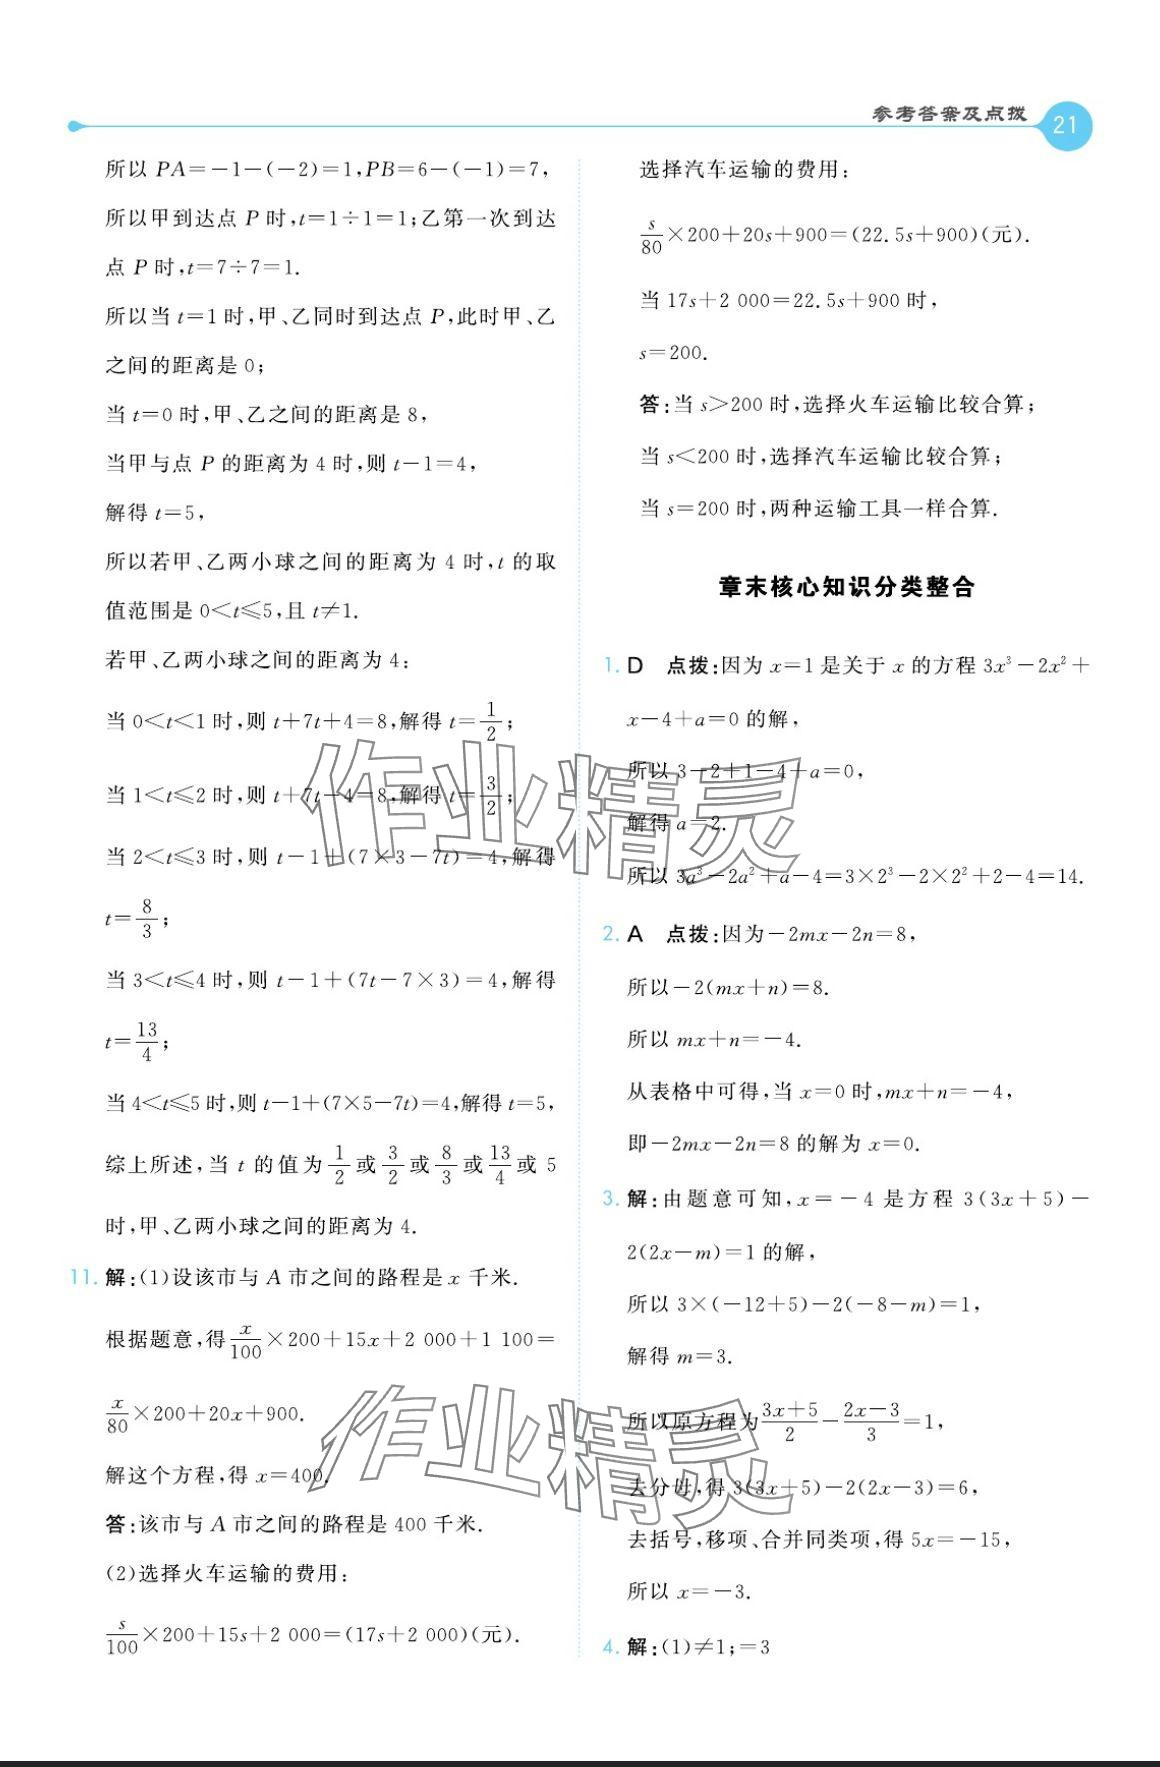 参考答案及点拨
21
所以 PA=-1-(-2)=1,PB=6-(-1)=7,
所以甲到达点 P 时,t=1÷1=1;乙第一次到达
点 P 时,t=7÷7=1.
所以当 t=1 时,甲、乙同时到达点 P,此时甲、乙
之间的距离是 0;
当 t=0 时,甲、乙之间的距离是 8,
当甲与点 P 的距离为 4 时,则 t-1=4,
解得 t=5,
所以若甲、乙两小球之间的距离为 4 时,t 的取
值范围是 0<t≤5,且 t≠1.
若甲、乙两小球之间的距离为 4:
当 0<t<1 时,则 t+7t+4=8,解得 t=1/2;
当 1<t≤2 时,则 t+7t-4=8,解得 t=3/2;
当 2<t≤3 时,则 t-1+(7×3-7t)=4,解得
t=8/3;
当 3<t≤4 时,则 t-1+(7t-7×3)=4,解得
t=13/4;
当 4<t≤5 时,则 t-1+(7×5-7t)=4,解得 t=5,
综上所述,当 t 的值为 1/2 或 3/2 或 8/3 或 13/4 或 5
时,甲、乙两小球之间的距离为 4.
11. 解:(1)设该市与 A 市之间的路程是 x 千米.
根据题意,得 x/100×200+15x+2 000+1 100=
x/80×200+20x+900.
解这个方程,得 x=400.
答:该市与 A 市之间的路程是 400 千米.
(2)选择火车运输的费用:
s/100×200+15s+2 000=(17s+2 000)(元).
选择汽车运输的费用:
s/80×200+20s+900=(22.5s+900)(元).
当 17s+2 000=22.5s+900 时,
s=200.
答:当 s>200 时,选择火车运输比较合算;
当 s<200 时,选择汽车运输比较合算;
当 s=200 时,两种运输工具一样合算.
章末核心知识分类整合
1. D 点拨:因为 x=1 是关于 x 的方程 3x³-2x²+
x-4+a=0 的解,
所以 3-2+1-4+a=0,
解得 a=2.
所以 3a³-2a²+a-4=3×2³-2×2²+2-4=14.
2. A 点拨:因为-2mx-2n=8,
所以-2(mx+n)=8.
所以 mx+n=-4.
从表格中可得,当 x=0 时,mx+n=-4,
即-2mx-2n=8 的解为 x=0.
3. 解:由题意可知,x=-4 是方程 3(3x+5)-
2(2x-m)=1 的解,
所以 3×(-12+5)-2(-8-m)=1,
解得 m=3.
所以原方程为 3x+5/2-2x-3/3=1,
去分母,得 3(3x+5)-2(2x-3)=6,
去括号,移项、合并同类项,得 5x=-15,
所以 x=-3.
4. 解:(1)≠1;=3
作业精灵
作业精灵